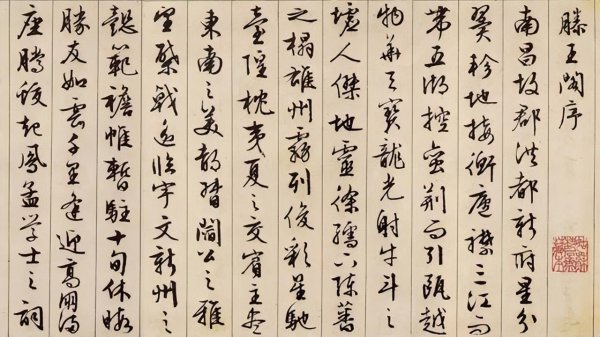 滕王閣序
南昌故郡洪都新府星分
翼軫地接衡廬襟三江而
帶五湖控蠻荊而引甌越
物華天寶龍光射牛斗之
墟人傑地靈徐孺下陳蕃
之榻雄州霧列俊彩星馳
臺隍枕夷夏之交賓主盡
東南之美都督閻公之雅
望棨戟遙臨宇文新州之
懿範襜帷暫駐十旬休暇
勝友如雲千里逢迎高朋滿
座騰蛟起鳳孟学士之詞